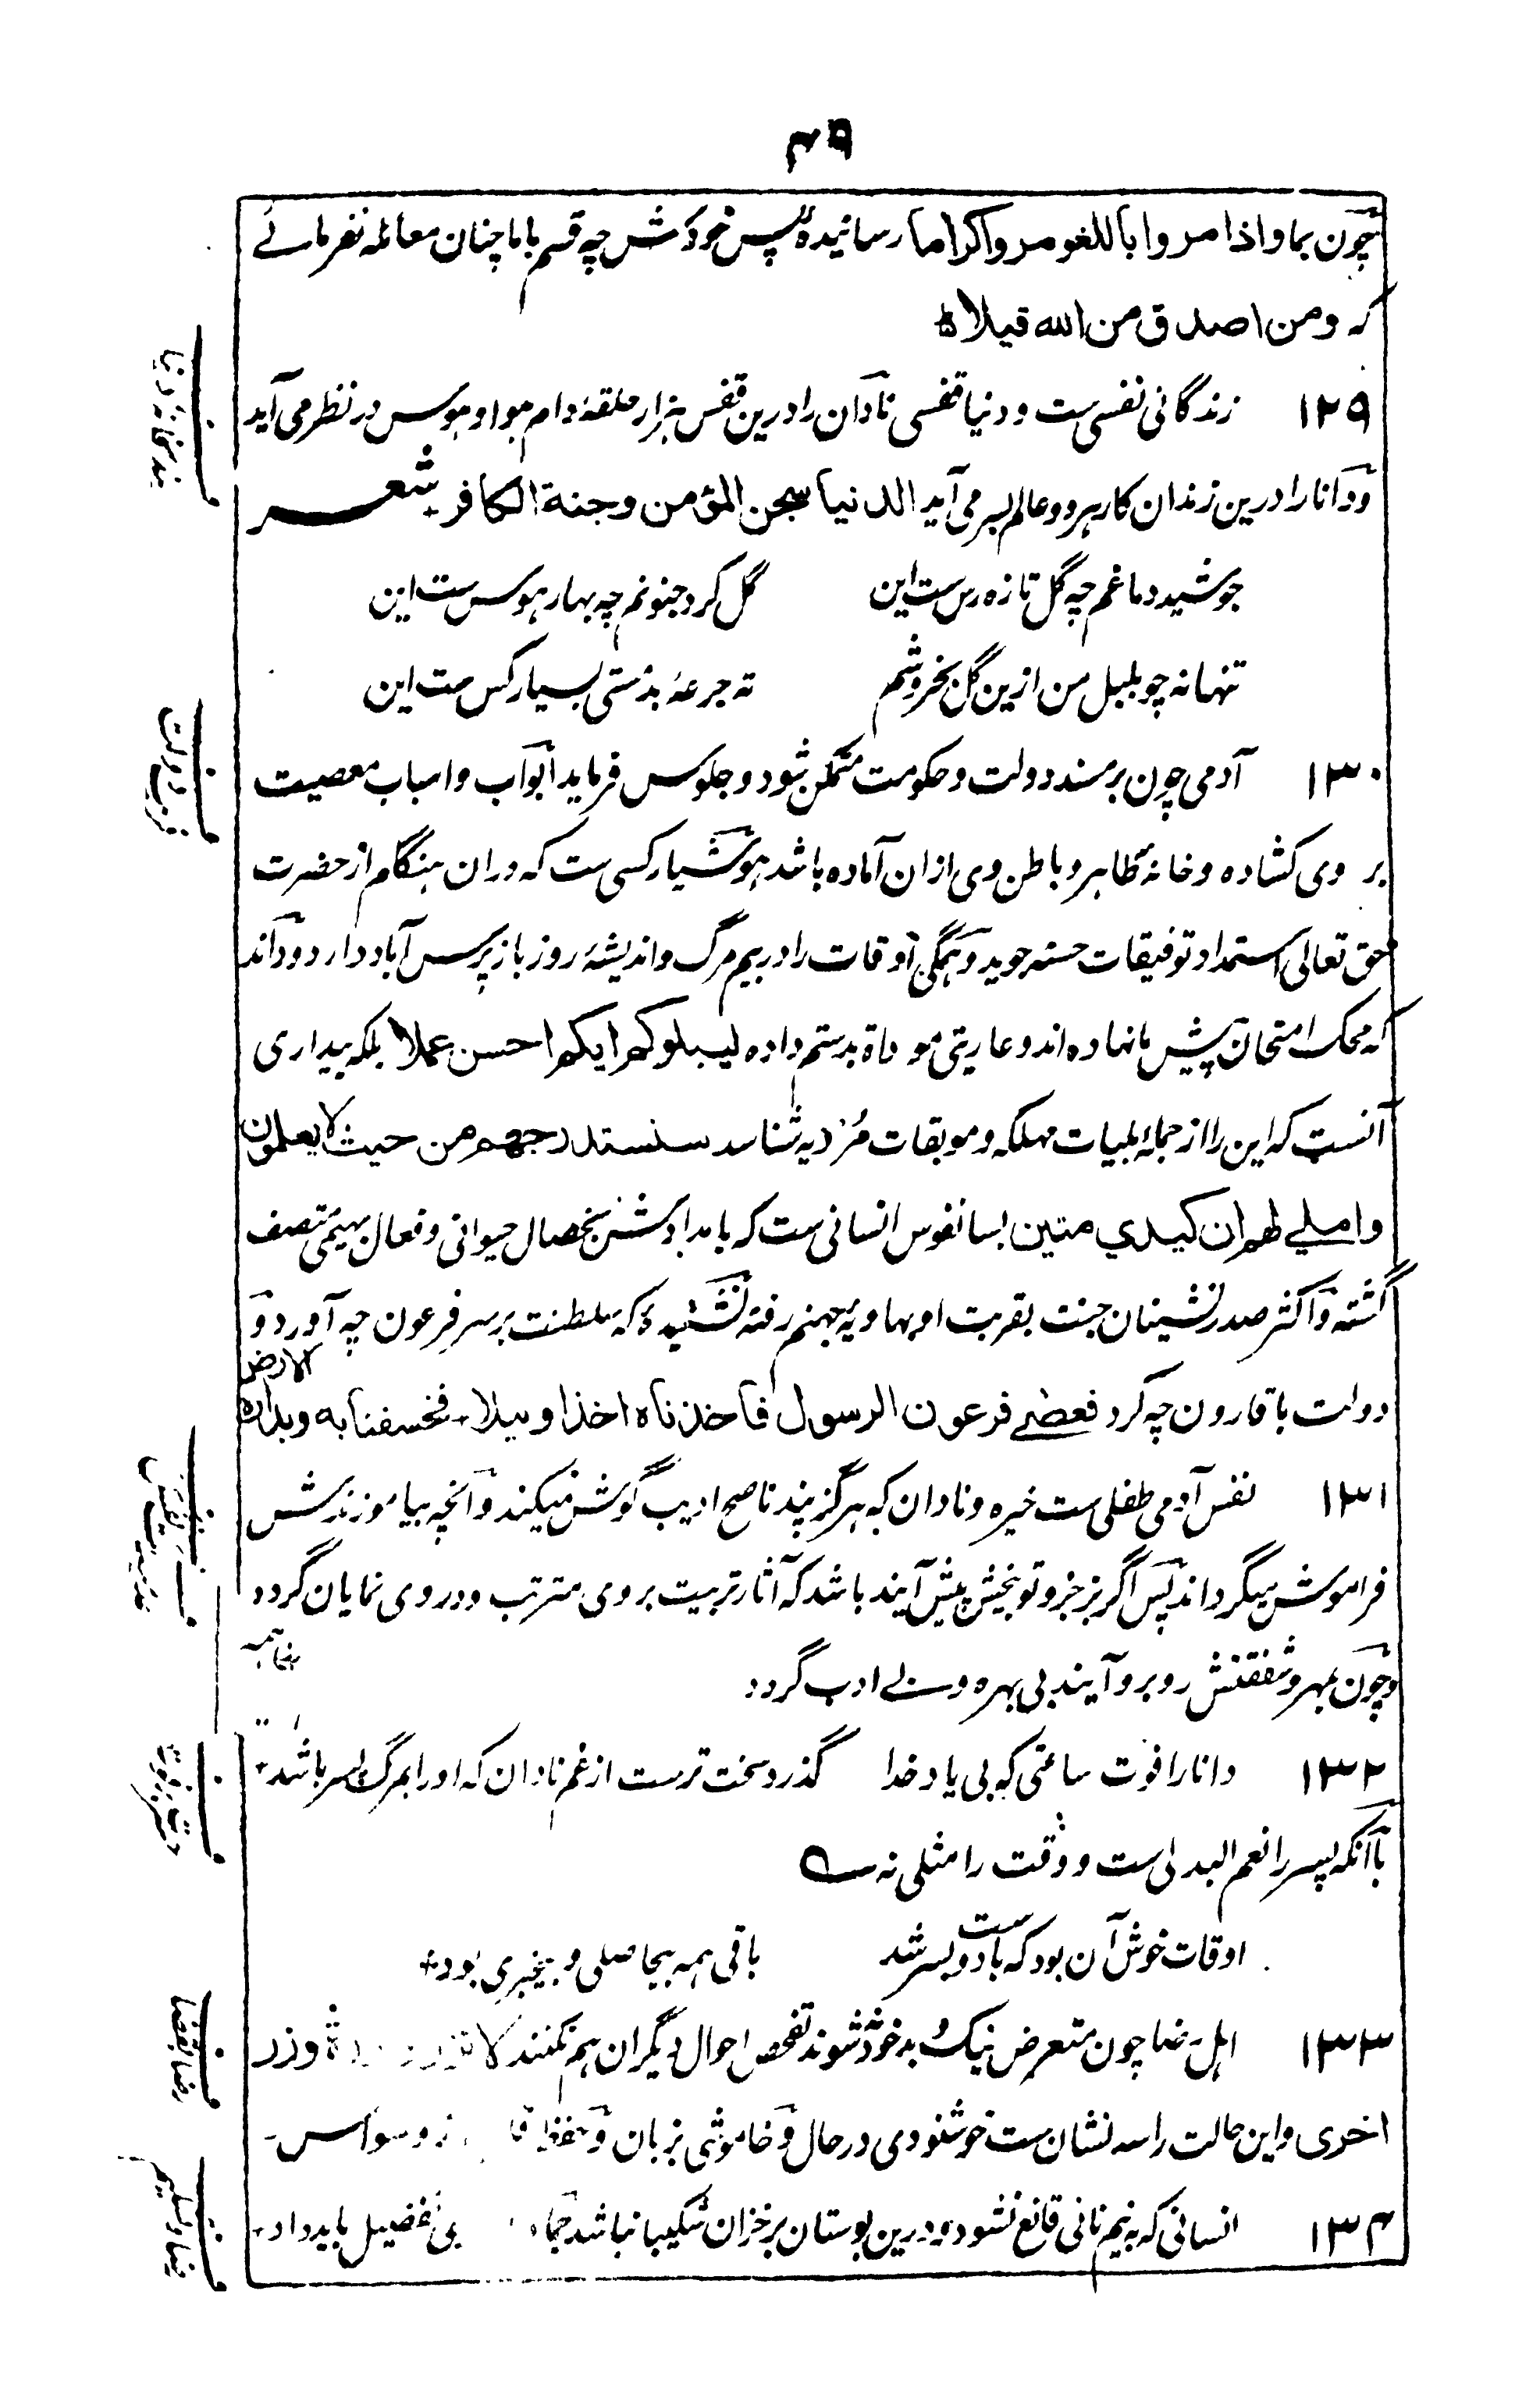 ۴۹
چون بما واذا مروا باللغو مروا كراما رسانیدهٔ پس خودش چه قسم با ما چنان معامله نفرمائے
که ومن اصدق من الله قیلا ه
۱۲۹ زندگانی نفسی ست و دنیا قفسی نادان را درین قفس هزار حلقهٔ دام هوا و هوس در نظر می آید
و دانا را درین زندان کار هر دو عالم بسر می آید الدنیا سجن المؤمن وجنة الکافر شعر
جوشید دماغم چه گل تازه رس ست این گل کرد جنونم چه بهار هوس ست این
تنها نه چو بلبل من ازین گل بخروشم ته جرعهٔ بدمستی بسیار کس ست این
۱۳۰ آدمی چون بر مسند دولت و حکومت متمکن شود و جلوس فرماید ابواب و اسباب معصیت
بر وی کشاده و خانهٔ ظاهر و باطن وی ازان آماده باشد هوشیار کسی ست که دران هنگام از حضرت
حق تعالی استمداد توفیقات حسنه جوید و همگی اوقات را در بیم مرگ و اندیشهٔ روز بازپرس آباد دارد و داند
که محک امتحان پیش ما نهاده اند و عاریتی بدستم داده لیبلوکم ایکم احسن عملا بلکه بیداری
آنست که این را از جملهٔ بلیات مهلکه و موبقات مردیه شناسد سنستدرجهم من حیث لا یعلمون
واملی لهم ان کیدي متین بسا نفوس انسانی ست که بامدادش بخصال حیوانی و فعال بهیمی متصف
گشته و اکثر صدر نشینان جنت بقربت او بهاویهٔ جهنم رفته نشنیدهٔ که سلطنت بر سر فرعون چه آورد و
دولت با قارون چه کرد فعصی فرعون الرسول فاخذناه اخذا وبیلا فخسفنا به وبداره الارض
۱۳۱ نفس آدمی طفلی ست خیره و نادان که هرگز پند ناصح ادیب گوش نمیکند و آنچه بیاموزندش
فراموش میگرداند پس اگر بزجر و توبیخش پیش آیند باشد که آثار تربیت بر وی مترتب و در وی نمایان گردد
و چون بمهر و شفقتش روبرو آیند بی بهره و بے ادب گردد
۱۳۲ دانا را فوت ساعتی که بی یاد خدا گذرد سخت ترست از غم نادان که او را بمرگ پسر باشد
با آنکه پسر را نعم البدلی ست و وقت را مثلی نه
اوقات خوش آن بود که با دوست بسر شد باقی همه بیحاصلی و بیخبری بود
۱۳۳ اهل رضا چون متعرض نیک و بد خود نشوند تفحص احوال دیگران هم نکنند وزر
اخری و این حالت را سه نشان ست خوشنودی در حال و خاموشی زبان و حفظ وسواس
۱۳۴ انسانی که به نیم نانی قانع نشود و درین بوستان بر خزان شکیبا نباشد تفضیل باید داد
بندیخانهٔ دنیا
فریب دولت
تربیت نفس
رضا بقضا
رضا و تسلیم